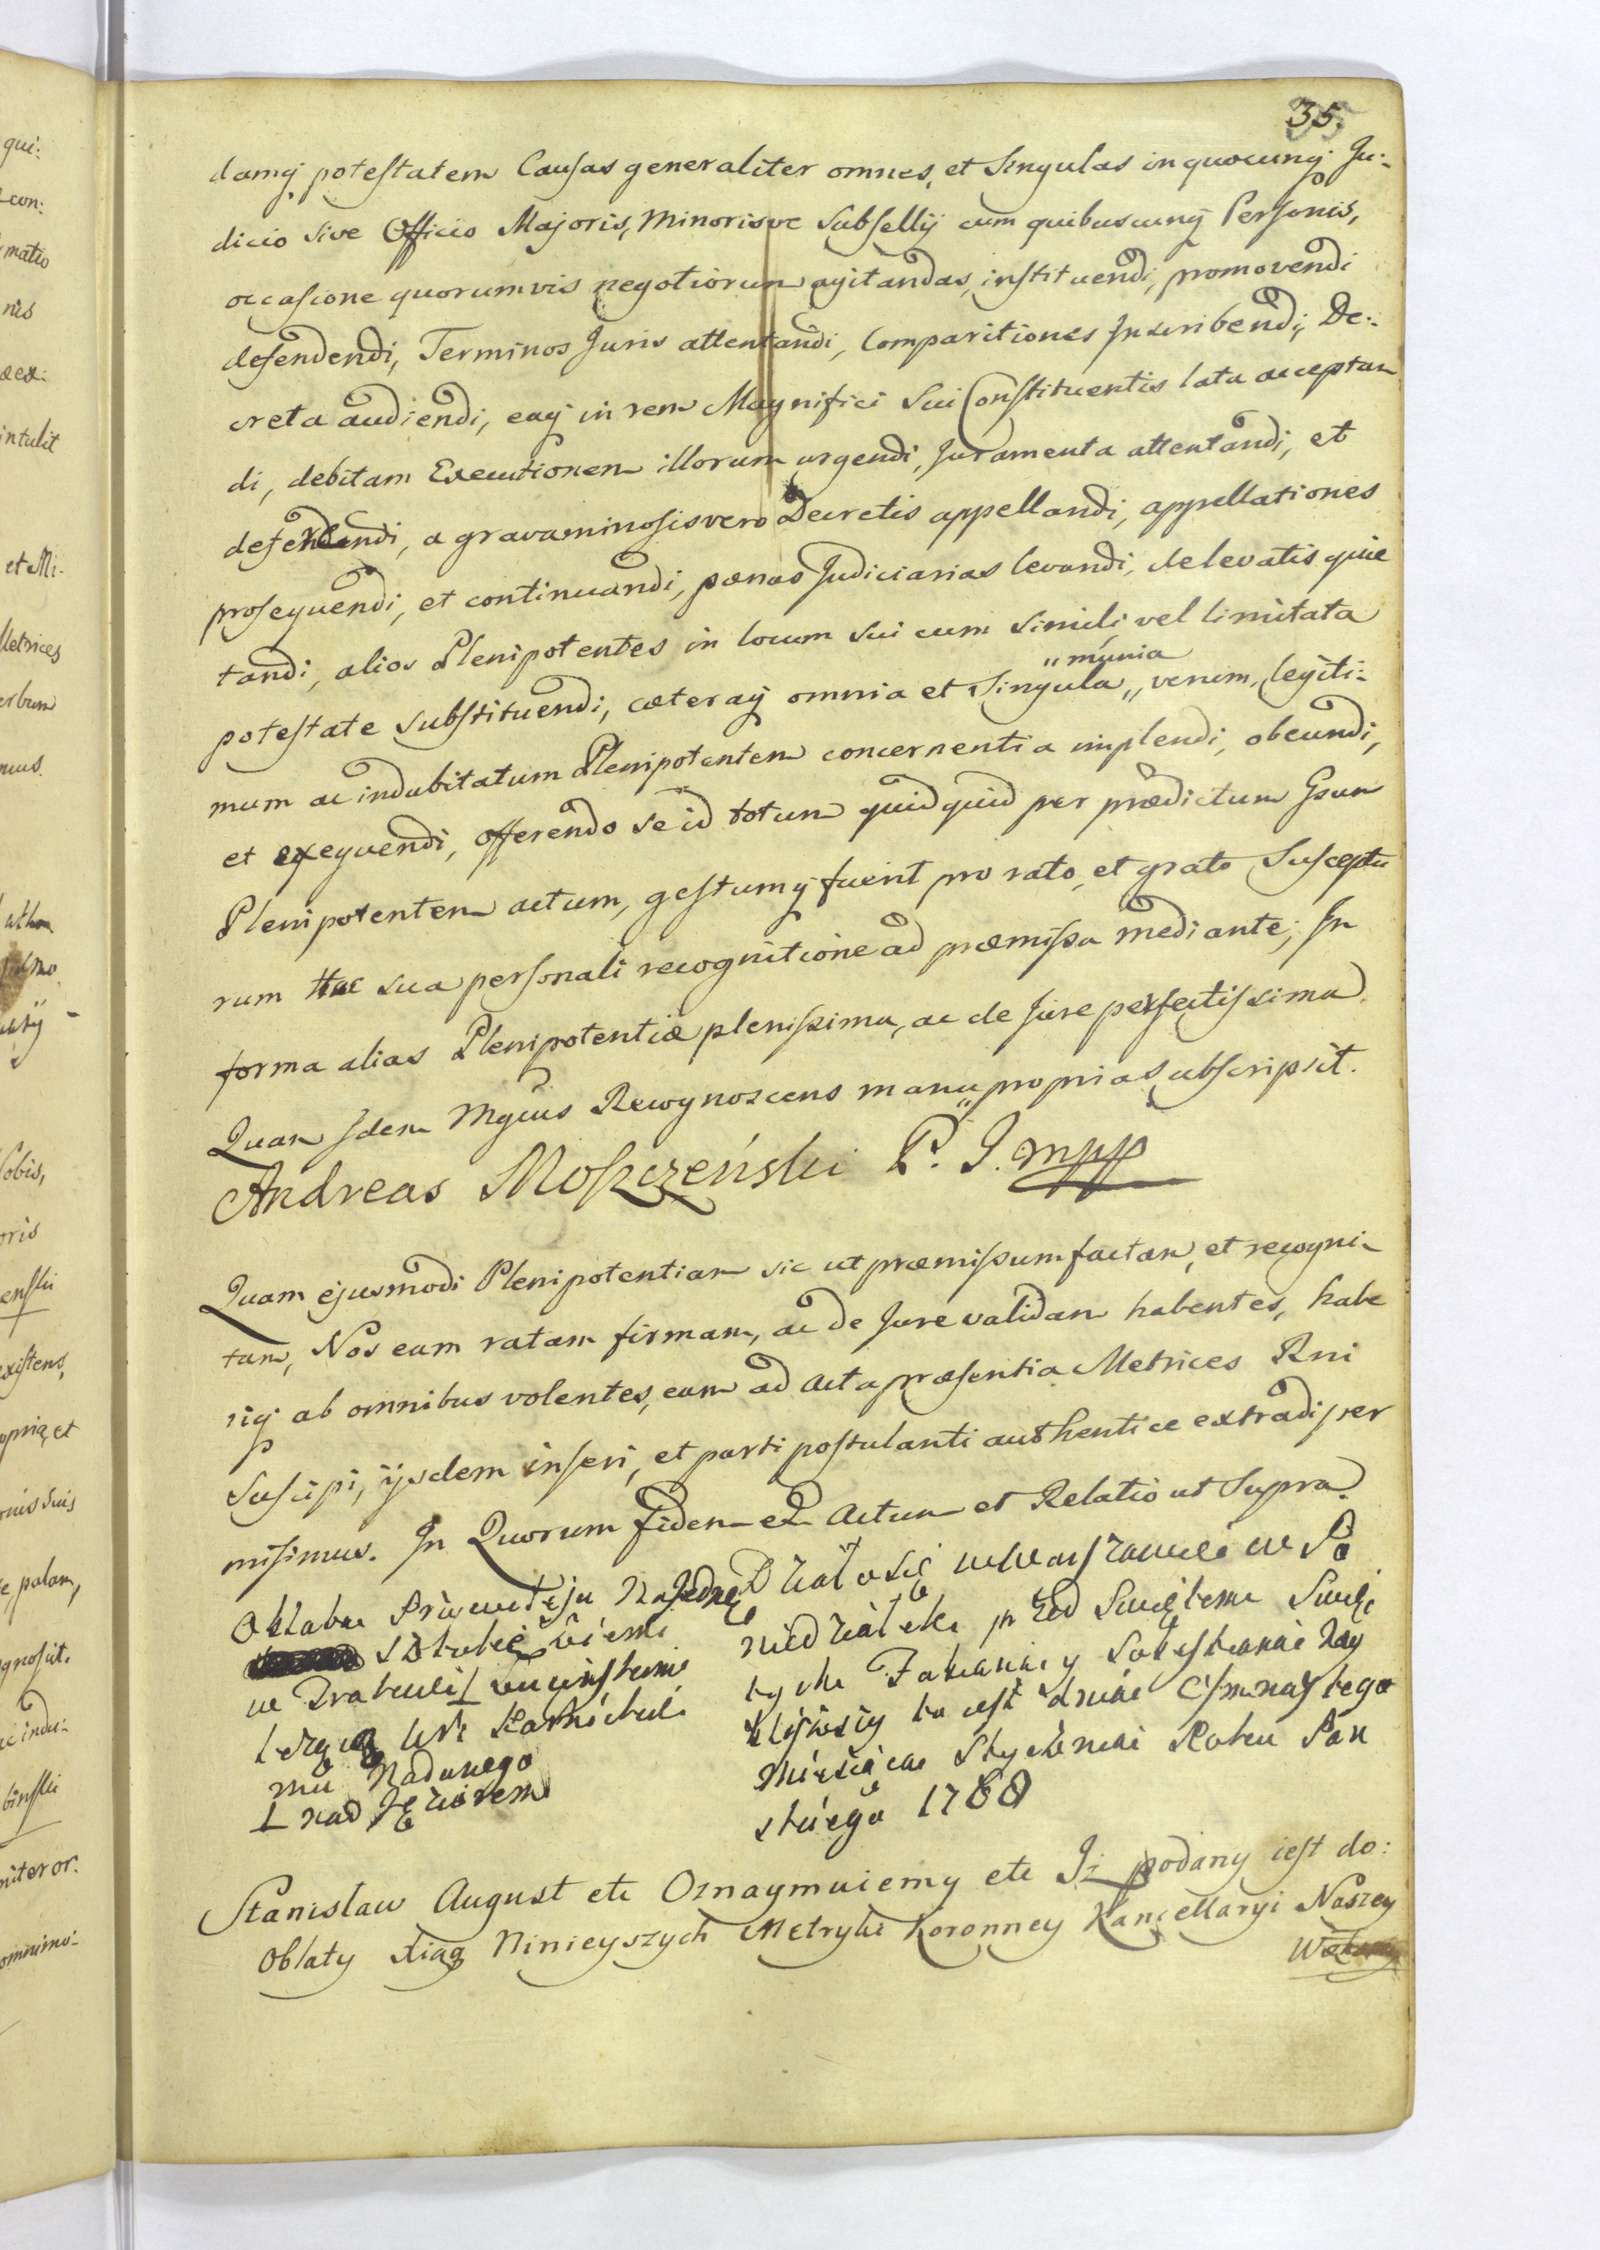 35.
damq potestatem Causas generaliter omnes, et Singulas in quocunq Ju:
dicio sive Officio Majoris, Minorisve Subsellij cum quibuscunq Personis,
occasione quorumvis negotiorum agitandas, instituendi, promovendi
defendendi, Terminos Juris attentandi, Comparitiones Inscribendi, De:
creta audiendi, eaq in rem Magnifici Sui Constituentis lata acceptan
di, debitam Executionem illorum urgendi, Juramenta attentandi, et
defendendi, a gravaminosis vero Decretis appellandi, appellationes
prosequendi, et continuandi, pænas Judiciarias levandi, de levatis quie
tandi, alios Plenipotentes in locum sui cum simili vel limitata
potestate substituendi, cæteraq omnia et Singula „ verum, legiti-
„ munia
mum ac indubitatum Plenipotentem concernentia implendi, obeundi,
et exequendi, offerendo se id totum quidquid per prædictum Gsum
Plenipotentem actum, gestumq fuerit pro rato, et grato Susceptu
rum hac sua personali recognitione ad præmissa mediante; In
forma alias Plenipotentiæ plenissima, ac de Jure perfectissima.
Quam Idem Mgcus Recognoscens manu propria subscripsit.
Andreas Moszczeński P. J. mpp
Quam ejusmodi Plenipotentiam sic ut præmissum factam, et recogni-
tam, Nos eam ratam firmam, ac de Jure validam habentes, habe
riq ab omnibus volentes, eam ad Acta præsentia Metrices Rni
Suscipi, ijsdem inseri, et parti postulanti authentice extradi per
misimus. In Quorum Fidem et Actum et Relatio ut Supra.
Oblata Przywileju Na Jedną
s Sztukę ziemi
w Trakcie
leżącą Ur
mu Nadanego
⊥ nad Jeziorem
Działo się w Warszawie w Po
niedziałek przed Swiętem Swię
tych Fabiana y Sebestiana Nay
bliższy to iest dnia Osmnastego
Miesiąca Stycznia Roku Pań
skiego 1788
Stanisław August etc Oznaymuiemy etc Iż podany iest do:
Oblaty Xiąg Ninieyszych Metryki Koronney Kancellaryi Naszey